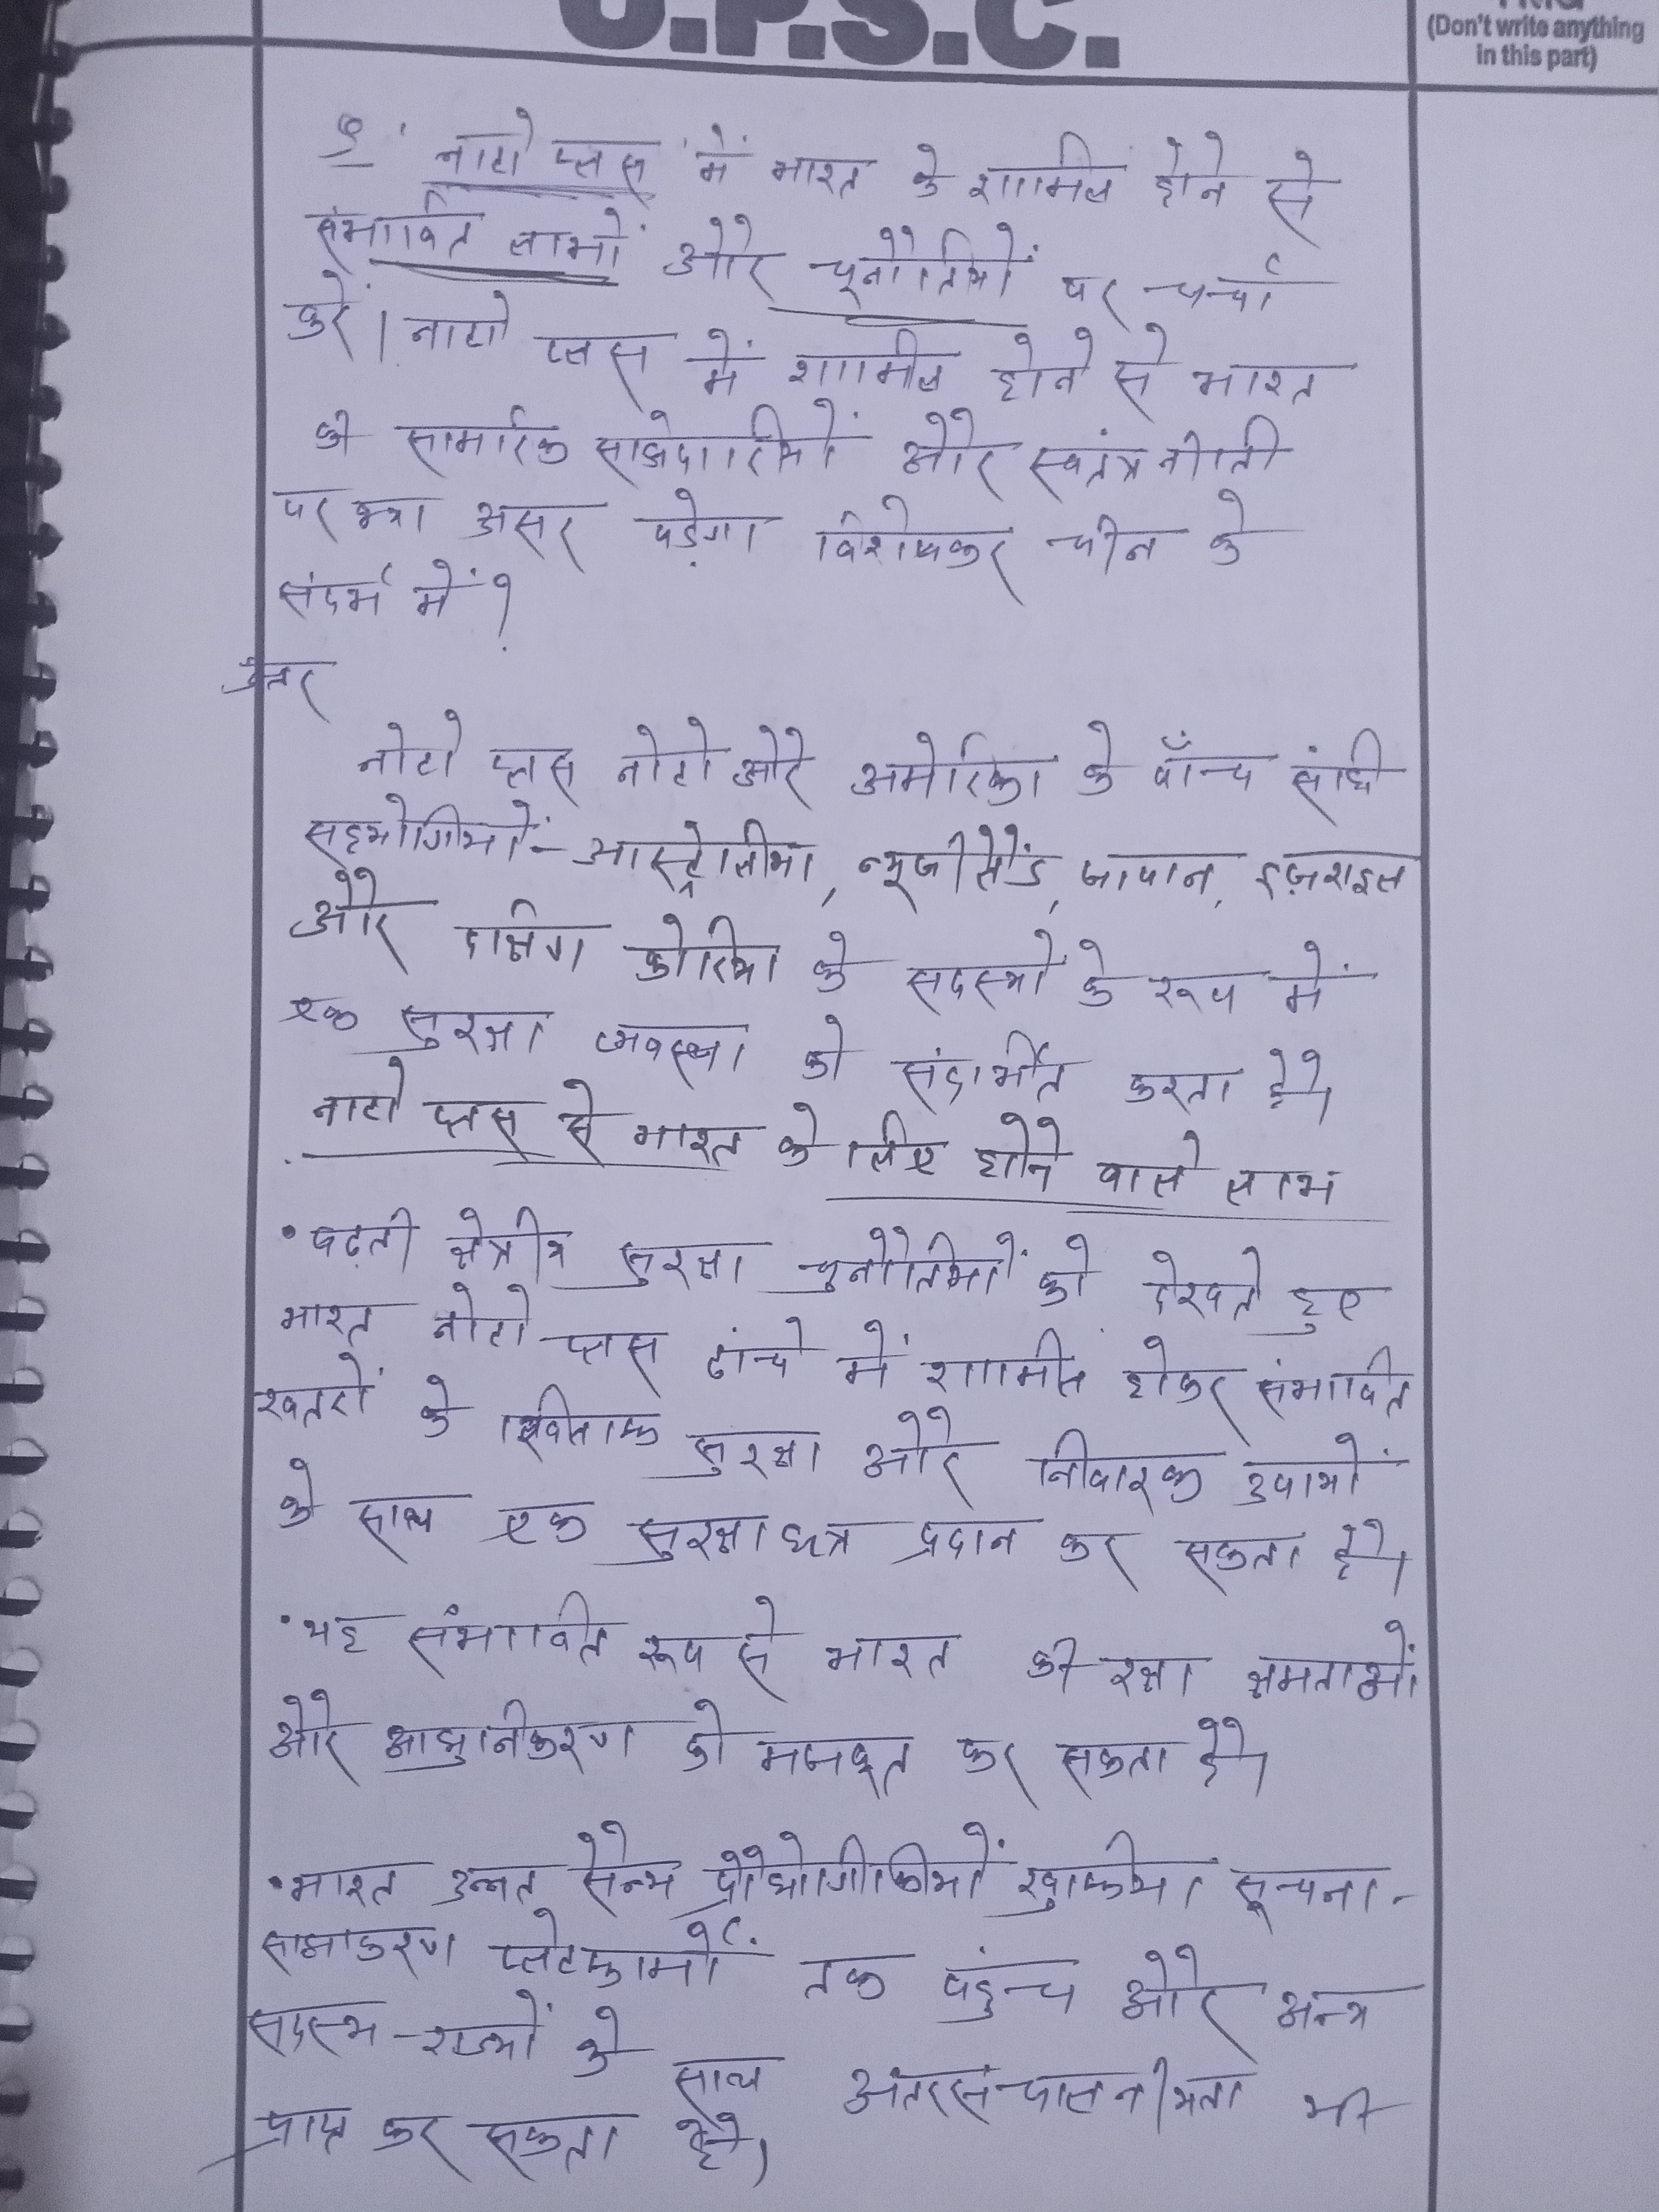 U.P.S.C.
(Don't write anything
in this part)
'नाटो प्लस' में भारत के शामिल होने से
संभावित लाभों और चूनौतियों पर चर्चा
करें। नाटो प्लस में शामील होने से भारत
की सामरिक साझेदारियों और स्वतंत्र नीती
पर क्या असर पड़ेगा विशेषकर चीन के
संदर्भ में?
उत्तर
नोटो प्लस नोटो और अमेरिका के पाँच संधि
सहयोगीयों - आस्ट्रेलीया, न्यूजीलैंड, जापान, इज़राइल
और दक्षिण कोरिया के सदस्यों के रूप में
एक सुरक्षा व्यवस्था को संदर्भीत करता है।
नाटो प्लस से भारत के लिए होने वाले लाभ
• बढ़ती क्षेत्रीय सुरक्षा चुनौतियों को देखते हुए
भारत नोटो प्लस ढांचे में शामील होकर संभावित
खतरों के खिलाफ सुरक्षा और निवारक उपायों
के साथ एक सुरक्षा छत्र प्रदान कर सकता है।
• यह संभावित रूप से भारत की रक्षा क्षमताओं
और आधुनीकरण को मजबूत कर सकता है।
• भारत उन्नत सैन्य प्रौद्योगीकीयों खुफीया सूचना-
साझाकरण प्लेटफार्मों तक पहुंच और अन्य
सदस्य-राज्यों के साथ अंतरसंचालनीयता भी
प्राप्त कर सकता है।